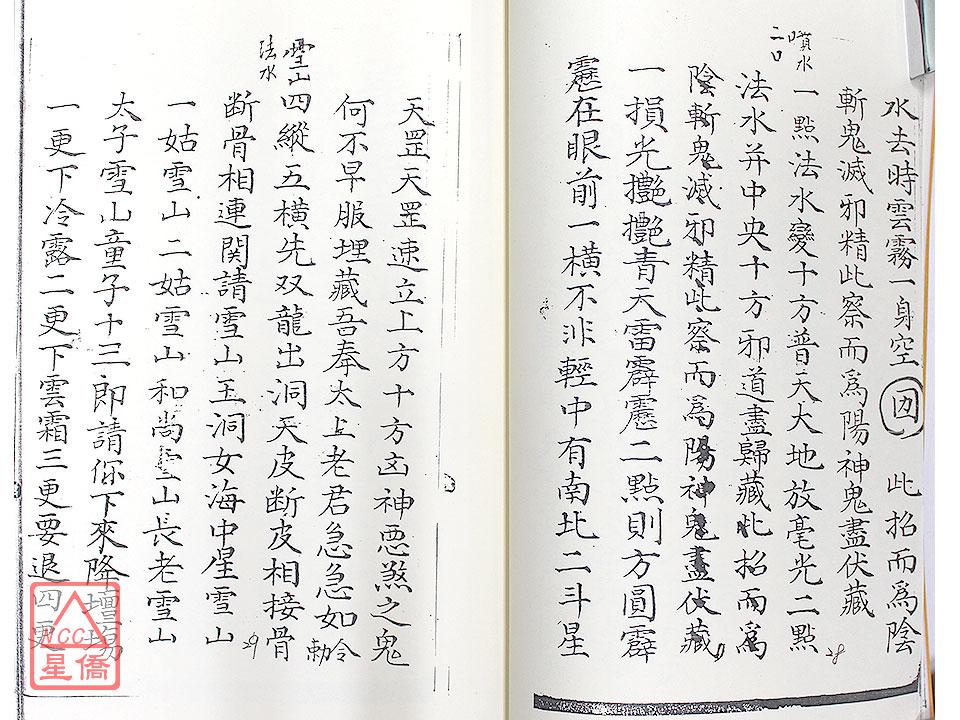 水去時雲霧一身空 四 此招而為陰
斬鬼滅邪精此察而為陽神鬼盡伏藏
噴水二口
一點法水變十方普天大地放毫光二點
28
法水并中央十方邪道盡歸藏此招而為
陰斬鬼滅邪精此察而為陽神鬼盡伏藏
一損光攪攪青天雷霹靂二點則方圓霹
靂在眼前一橫不非輕中有南北二斗星
天罡天罡速立上方十方凶神惡煞之鬼
何不早服埋藏吾奉太上老君急急如令勅
雪山法水
四縱五橫先双龍出洞天皮断皮相接骨
29
断骨相連関請雪山玉洞女海中星雪山
一姑雪山二姑雪山和尚雪山長老雪山
太子雪山童子十三郎請你下來降壇場
一更下冷露二更下雲霜三更要退四更
NCC
星僑